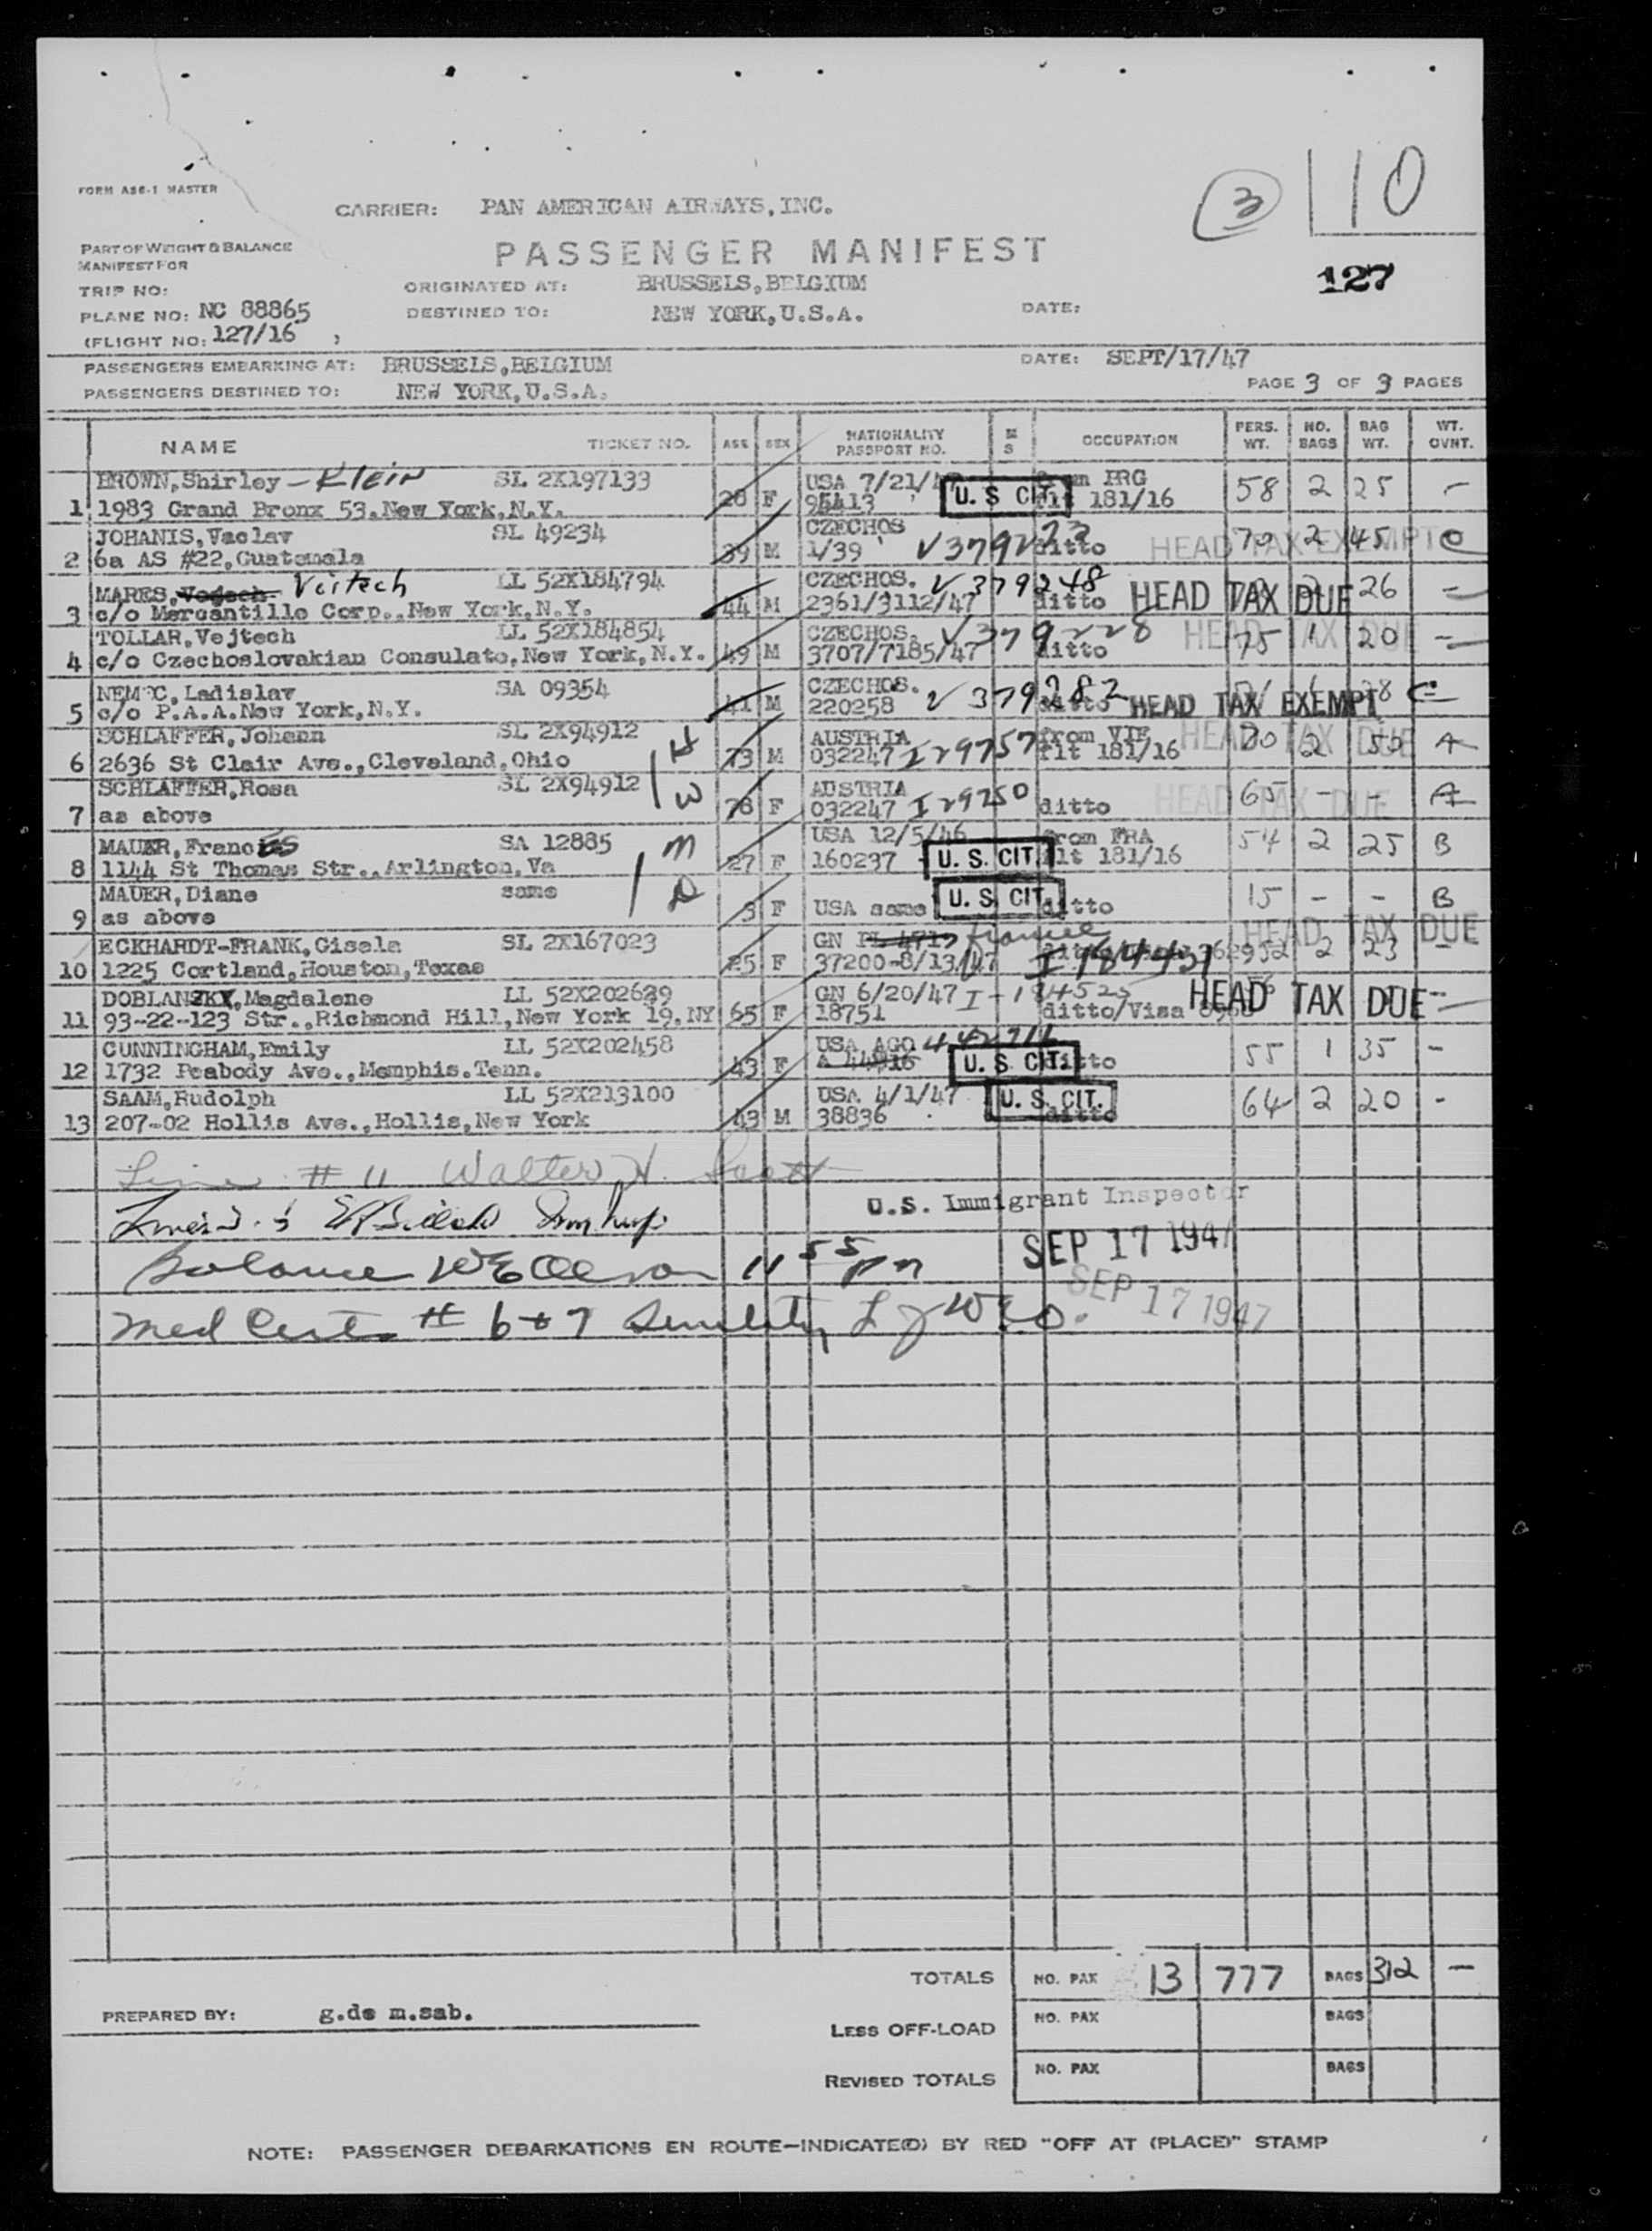 FORM AS6-1 MASTER
CARRIER: PAN AMERICAN AIRWAYS, INC.
3
10
PART OF WEIGHT & BALANCE
MANIFEST FOR
PASSENGER MANIFEST
127
TRIP NO:
ORIGINATED AT: BRUSSELS, BELGIUM
PLANE NO: NC 88865
DESTINED TO: NEW YORK, U.S.A.
DATE:
(FLIGHT NO: 127/16 )
PASSENGERS EMBARKING AT: BRUSSELS, BELGIUM
DATE: SEPT/17/47
PASSENGERS DESTINED TO: NEW YORK, U.S.A.
PAGE 3 OF 3 PAGES
NAME TICKET NO. AGE SEX NATIONALITY PASSPORT NO. M S OCCUPATION PERS. WT. NO. BAGS BAG WT. WT. OVNT.
BROWN, Shirley - Klein SL 2X197133 USA 7/21/ from PRG
1 1983 Grand Bronx 53. New York, N.Y. 28 F 95413 U. S CIT. flt 181/16 58 2 25 -
JOHANIS, Vaclav SL 49234 CZECHOS
2 6a AS #22, Guatemala 39 M 1/39 ditto HEAD TAX EXEMPT 70 2 45 C
MARES, Vojtech Veitech LL 52X184794 CZECHOS. V 379248
3 c/o Mercantille Corp., New York, N.Y. 44 M 2361/3112/47 ditto HEAD TAX DUE 26 -
TOLLAR, Vejtech LL 52X184854 CZECHOS. V379228
4 c/o Czechoslovakian Consulate, New York, N.Y. 49 M 3707/7185/47 ditto HEAD TAX DUE 75 1 20 -
NEMEC, Ladislav SA 09354 CZECHOS.
5 c/o P.A.A. New York, N.Y. 41 M 220258 V 379282 ditto HEAD TAX EXEMPT C
SCHLAFFER, Johann SL 2X94912 H AUSTRIA from VIE
6 2636 St Clair Ave., Cleveland, Ohio 73 M 032247 I 29757 flt 181/16 HEAD TAX DUE 80 2 50 A
SCHLAFFER, Rosa SL 2X94912 W AUSTRIA
7 as above 78 F 032247 I 29750 ditto HEAD TAX DUE 65 - - A
MAUER, Frances SA 12885 M USA 12/5/46 from FRA
8 1144 St Thomas Str., Arlington, Va 27 F 160237 U. S. CIT. flt 181/16 54 2 25 B
MAUER, Diane same D
9 as above 3 F USA same U. S. CIT. ditto 15 - - B
ECKHARDT-FRANK, Gisela SL 2X167023 GN HEAD TAX DUE
10 1225 Cortland, Houston, Texas 25 F 37200-8/13/47 I 184431 52 2 23 -
DOBLANZKY, Magdalene LL 52X202639 GN 6/20/47 I-184525
11 93-22-123 Str., Richmond Hill, New York 19. NY 65 F 18751 ditto/Visa HEAD TAX DUE -
CUNNINGHAM, Emily LL 52X202458 USA AGO 442714
12 1732 Peabody Ave., Memphis. Tenn. 43 F A 44916 U. S. CIT. ditto 55 1 35 -
SAAM, Rudolph LL 52X213100 USA 4/1/47
13 207-02 Hollis Ave., Hollis, New York 43 M 38836 U. S. CIT. ditto 64 2 20 -
Line # 11 Walter H. Scott
U.S. Immigrant Inspector
Lines
SEP 17 1947
Balance 11 55 pm
SEP 17 1947
Med Cert. # 6 + 7 Senility
TOTALS NO. PAX 13 777 BAGS 312 -
PREPARED BY: g.de m.sab.
LESS OFF-LOAD NO. PAX BAGS
REVISED TOTALS NO. PAX BAGS
NOTE: PASSENGER DEBARKATIONS EN ROUTE-INDICATE(D) BY RED "OFF AT (PLACE)" STAMP